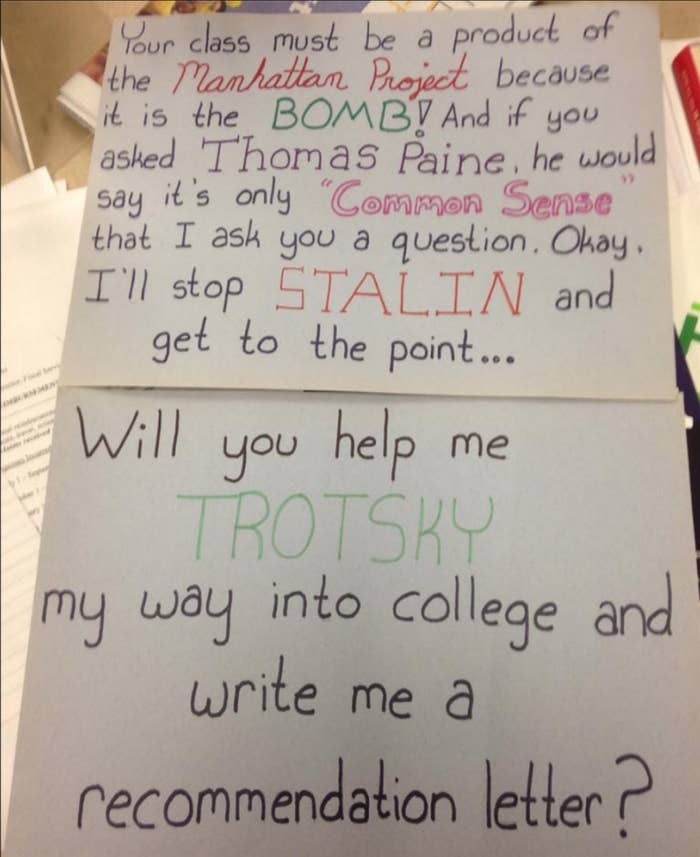 Your class must be a product of
the Manhattan Project because
it is the BOMB! And if you
asked Thomas Paine, he would
say it's only "Common Sense"
that I ask you a question. Okay,
I'll stop STALIN and
get to the point...
Will you help me
TROTSKY
my way into college and
write me a
recommendation letter?